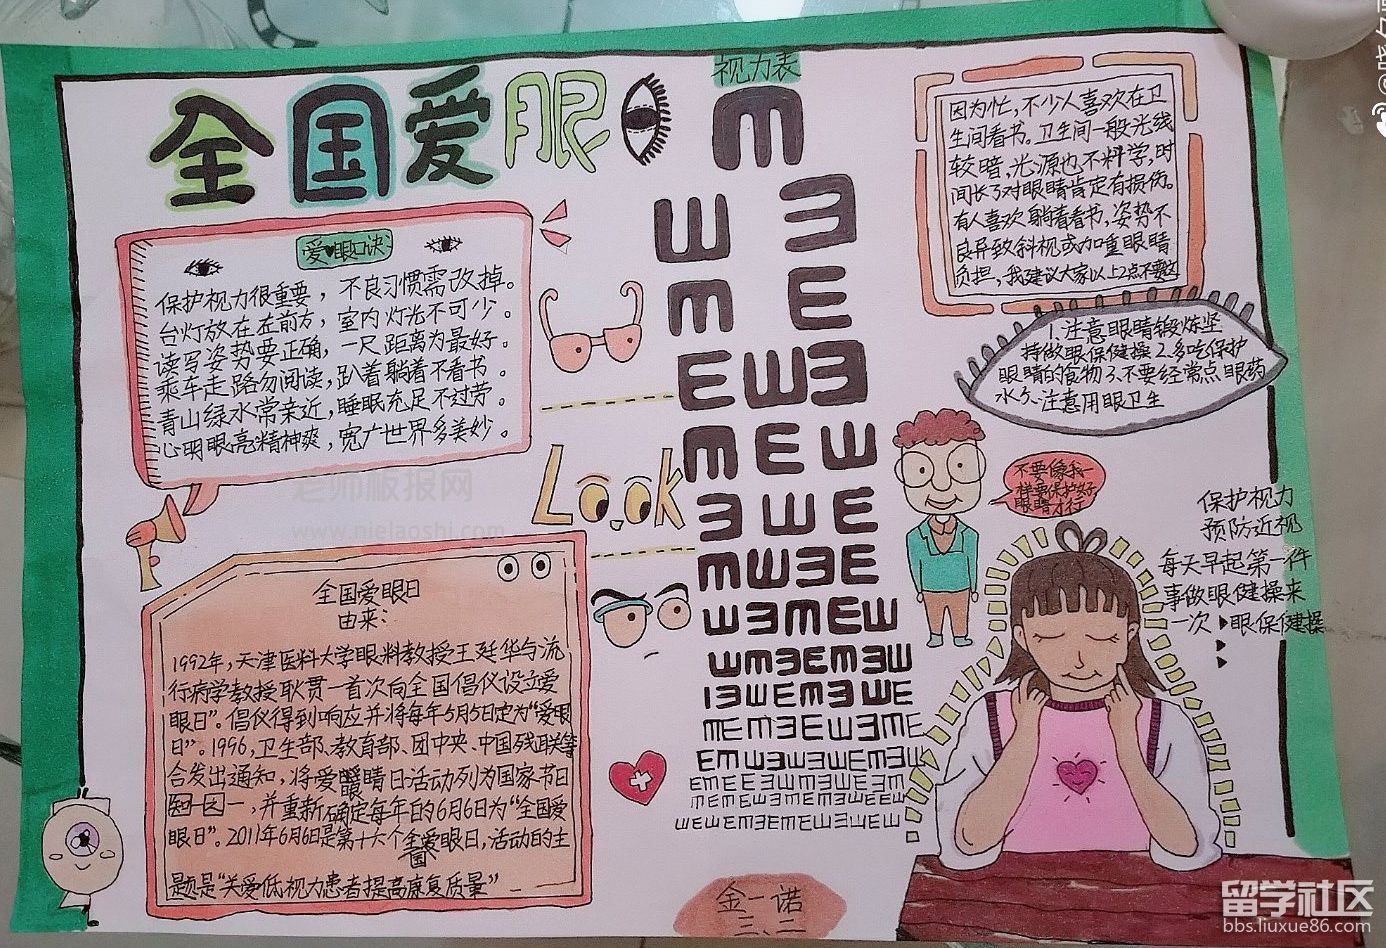 全国爱眼
视力表
爱眼口诀
保护视力很重要，不良习惯需改掉。
台灯放在左前方，室内灯光不可少。
读写姿势要正确，一尺距离为最好。
乘车走路勿阅读，趴着躺着不看书。
青山绿水常亲近，睡眠充足不过劳。
心明眼亮精神爽，宽广世界多美妙。
因为忙，不少人喜欢在卫
生间看书。卫生间一般光线
较暗，光源也不科学，时
间长了对眼睛肯定有损伤。
有人喜欢躺着看书，姿势不
良导致斜视或加重眼睛
负担，我建议大家以上2点不要这
1.注意眼睛锻炼坚
持做眼保健操2.多吃保护
眼睛的食物3.不要经常点眼药
水5.注意用眼卫生
Look
不要像我一
样要保护好
眼睛才行
保护视力
预防近视
每天早起第一件
事做眼健操来
一次眼保健操
全国爱眼日
由来：
1992年，天津医科大学眼科教授王延华与流
行病学教授耿贯一首次向全国倡仪设立爱
眼日”。倡仪得到响应并将每年5月5日定为“爱眼
日”。1996，卫生部、教育部、团中央、中国残联等
合发出通知，将爱眼睛日活动列为国家节日
，并重新确定每年的6月6日为“全国爱
眼日”。2011年6月6日是第十六个全国爱眼日，活动的主
题是“关爱低视力患者提高康复质量”
金一诺
三、二
老师板报网
www.nielaoshi.com
留学社区
bbs.liuxue86.com